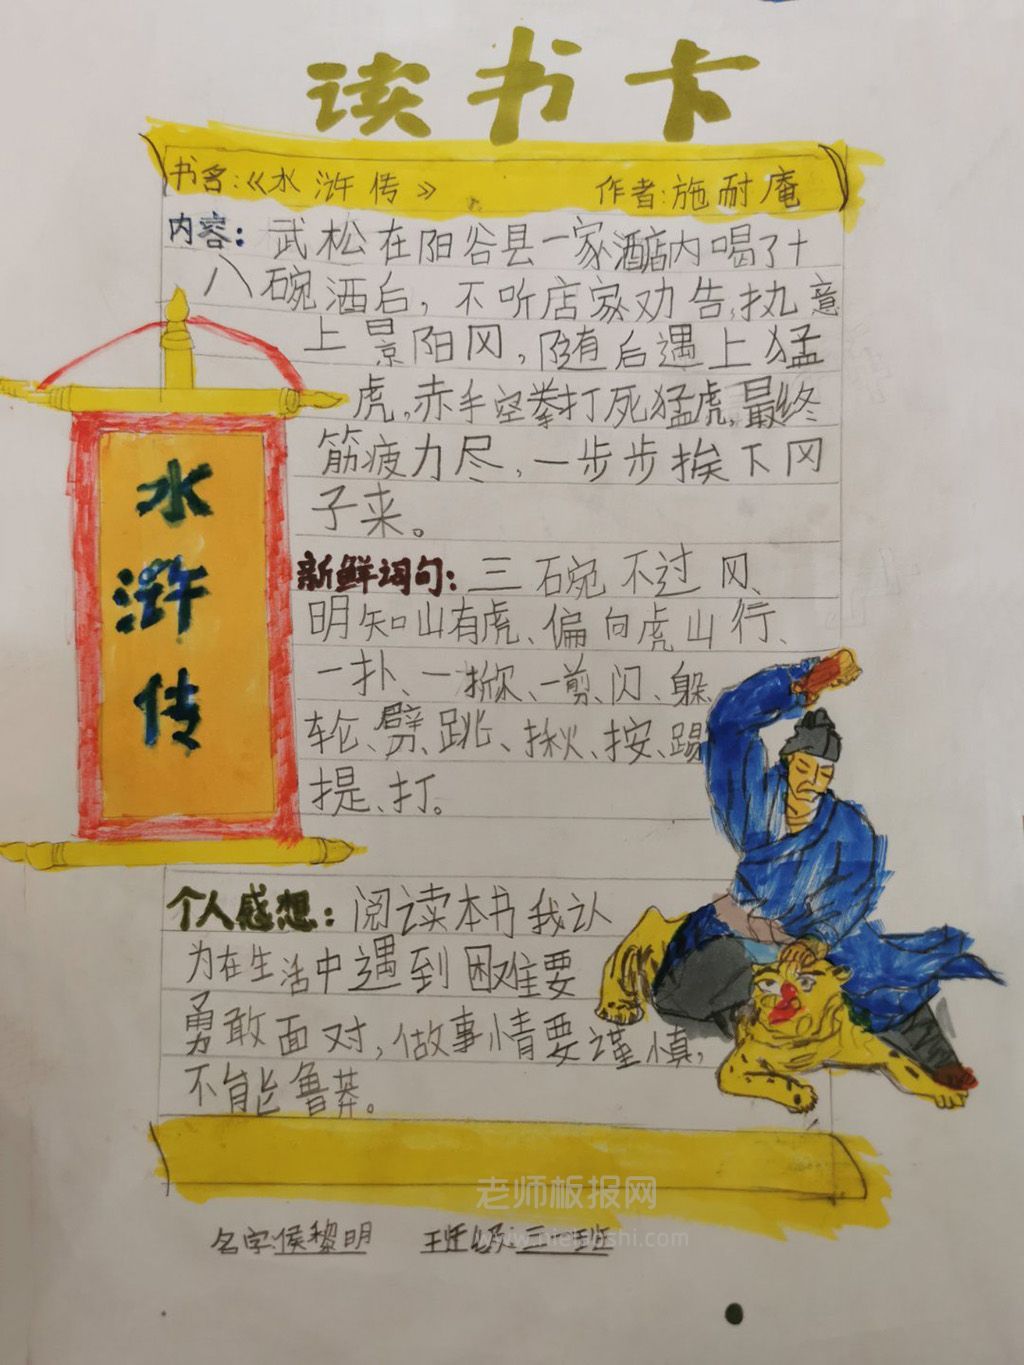 读书卡
书名:《水浒传》 作者:施耐庵
内容:武松在阳谷县一家酒店内喝了十
八碗酒后，不听店家劝告,执意
上景阳冈，随后遇上猛
虎。赤手空拳打死猛虎,最终
筋疲力尽，一步步挨下冈
子来。
水浒传
新鲜词句:三碗不过冈、
明知山有虎、偏向虎山行、
一扑、一掀、一剪、闪、躲
轮、劈、跳、揪、按、踢
提、打。
个人感想:阅读本书我认
为在生活中遇到困难要
勇敢面对,做事情要谨慎,
不能鲁莽。
老师板报网
名字:侯黎明 班级:三一班